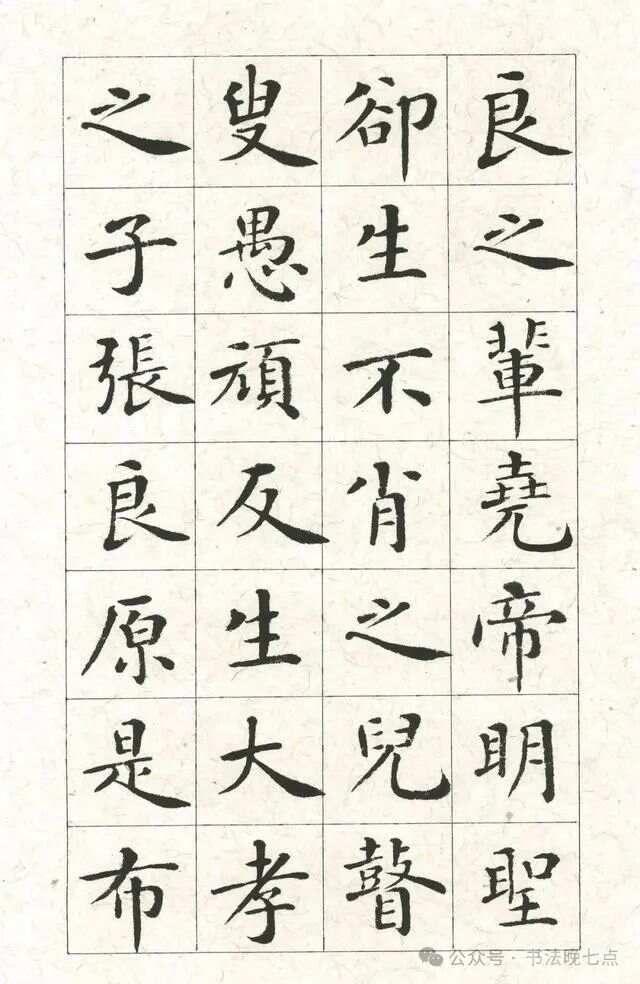 良之輩堯帝明聖
卻生不肖之兒瞽
叟愚頑反生大孝
之子張良原是布
公众号 · 书法晚七点